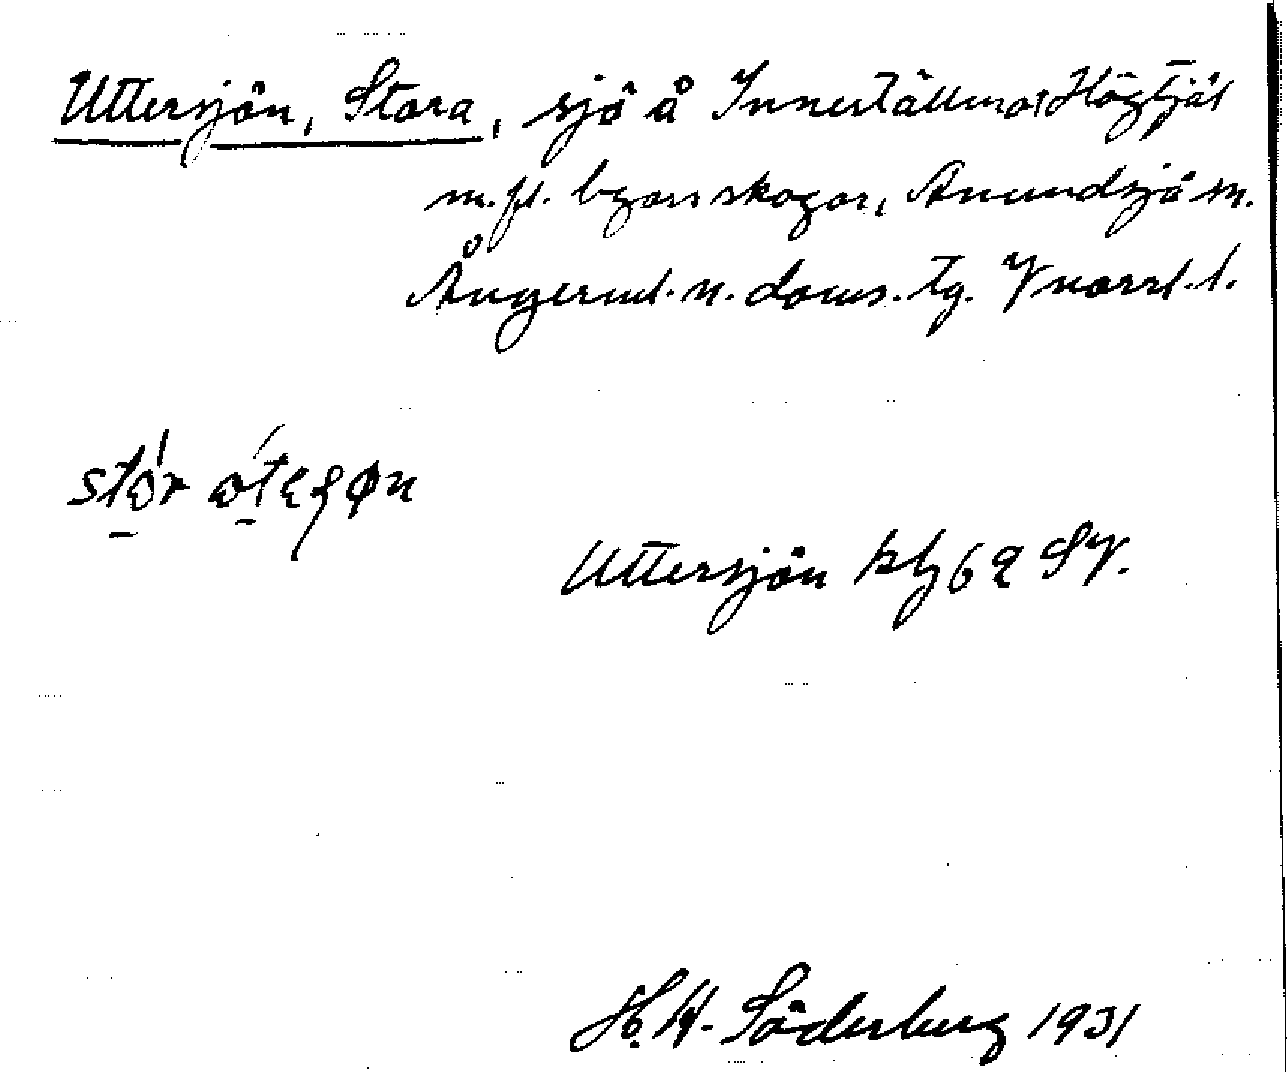 Uttersjön, Stora, sjö å Innertällmo, Högtjäl
m.fl. byars skogar, Anundsjö sn.
Ångerml. n. doms. tg. Vnorrl. l.
stor
Uttersjön kbl 62 SV.
H. W. Söderberg 1931